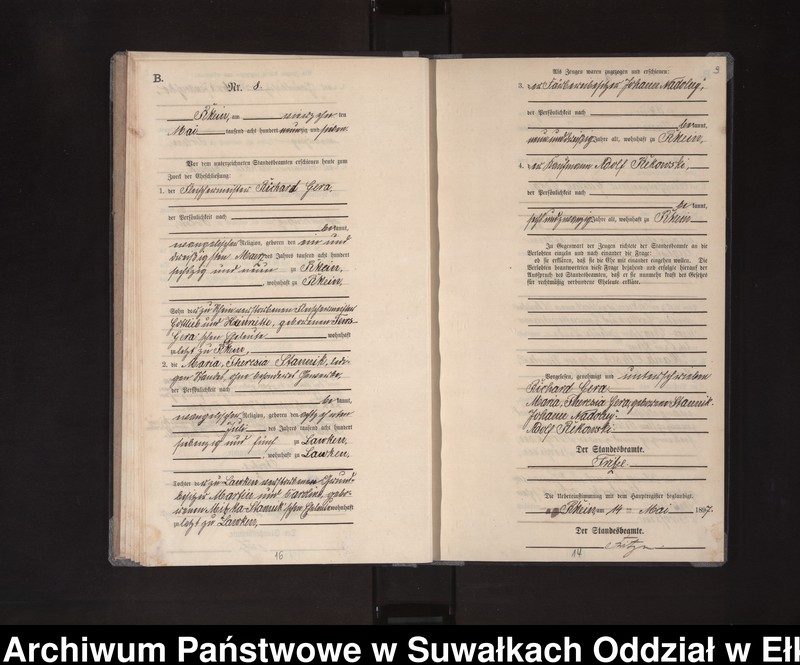 B.
Nr. 8.
Rhein, am vierzehn ten
Mai tausend acht hundert neunzig und sieben
Vor dem unterzeichneten Standesbeamten erschienen heute zum
Zweck der Eheschließung:
1. der Fleischermeister Richard Gera,
der Persönlichkeit nach
be kannt,
evangelischer Religion, geboren den ein und
dreißigsten März des Jahres tausend acht hundert
sechszig und neun zu Rhein,
, wohnhaft zu Rhein,
Sohn des zu Rhein verstorbenen Fleischermeister
Gottlieb und Henriette, geborenen
Gera'schen Eheleute wohnhaft
zuletzt zu Rhein,
2. die Maria, Theresia Stannik, ledi-
gen Standes, ohne besonderes Gewerbe,
der Persönlichkeit nach
be kannt,
evangelischer Religion, geboren den
Juli des Jahres tausend acht hundert
siebenzig und fünf zu Lawken,
, wohnhaft zu Lawken
Tochter der zu Lawken verstorbenen Grund-
besitzer Martin und Caroline, gebo-
renen Stannik'schen Eheleute wohnhaft
zuletzt zu Lawken,
16
9
Als Zeugen waren zugezogen und erschienen:
3. der Färbereibesitzer Johann Nadolny,
der Persönlichkeit nach
be kannt,
Jahre alt, wohnhaft zu Rhein,
4. der Kaufmann Adolf Rikowski,
der Persönlichkeit nach
be kannt,
sechsundzwanzig Jahre alt, wohnhaft zu Rhein
In Gegenwart der Zeugen richtete der Standesbeamte an die
Verlobten einzeln und nach einander die Frage:
ob sie erklären, daß sie die Ehe mit einander eingehen wollen. Die
Verlobten beantworteten diese Frage bejahend und erfolgte hierauf der
Ausspruch des Standesbeamten, daß er sie nunmehr kraft des Gesetzes
für rechtmäßig verbundene Eheleute erkläre.
Vorgelesen, genehmigt und unterschrieben
Richard Gera
Maria, Theresia Gera, geborene Stannik.
Johann Nadolny.
Adolf Rikowski.
Der Standesbeamte.
Die Uebereinstimmung mit dem Hauptregister beglaubigt.
Rhein am 14 ten Mai 1897.
Der Standesbeamte.
14
Archiwum Państwowe w Suwałkach Oddział w Ełk